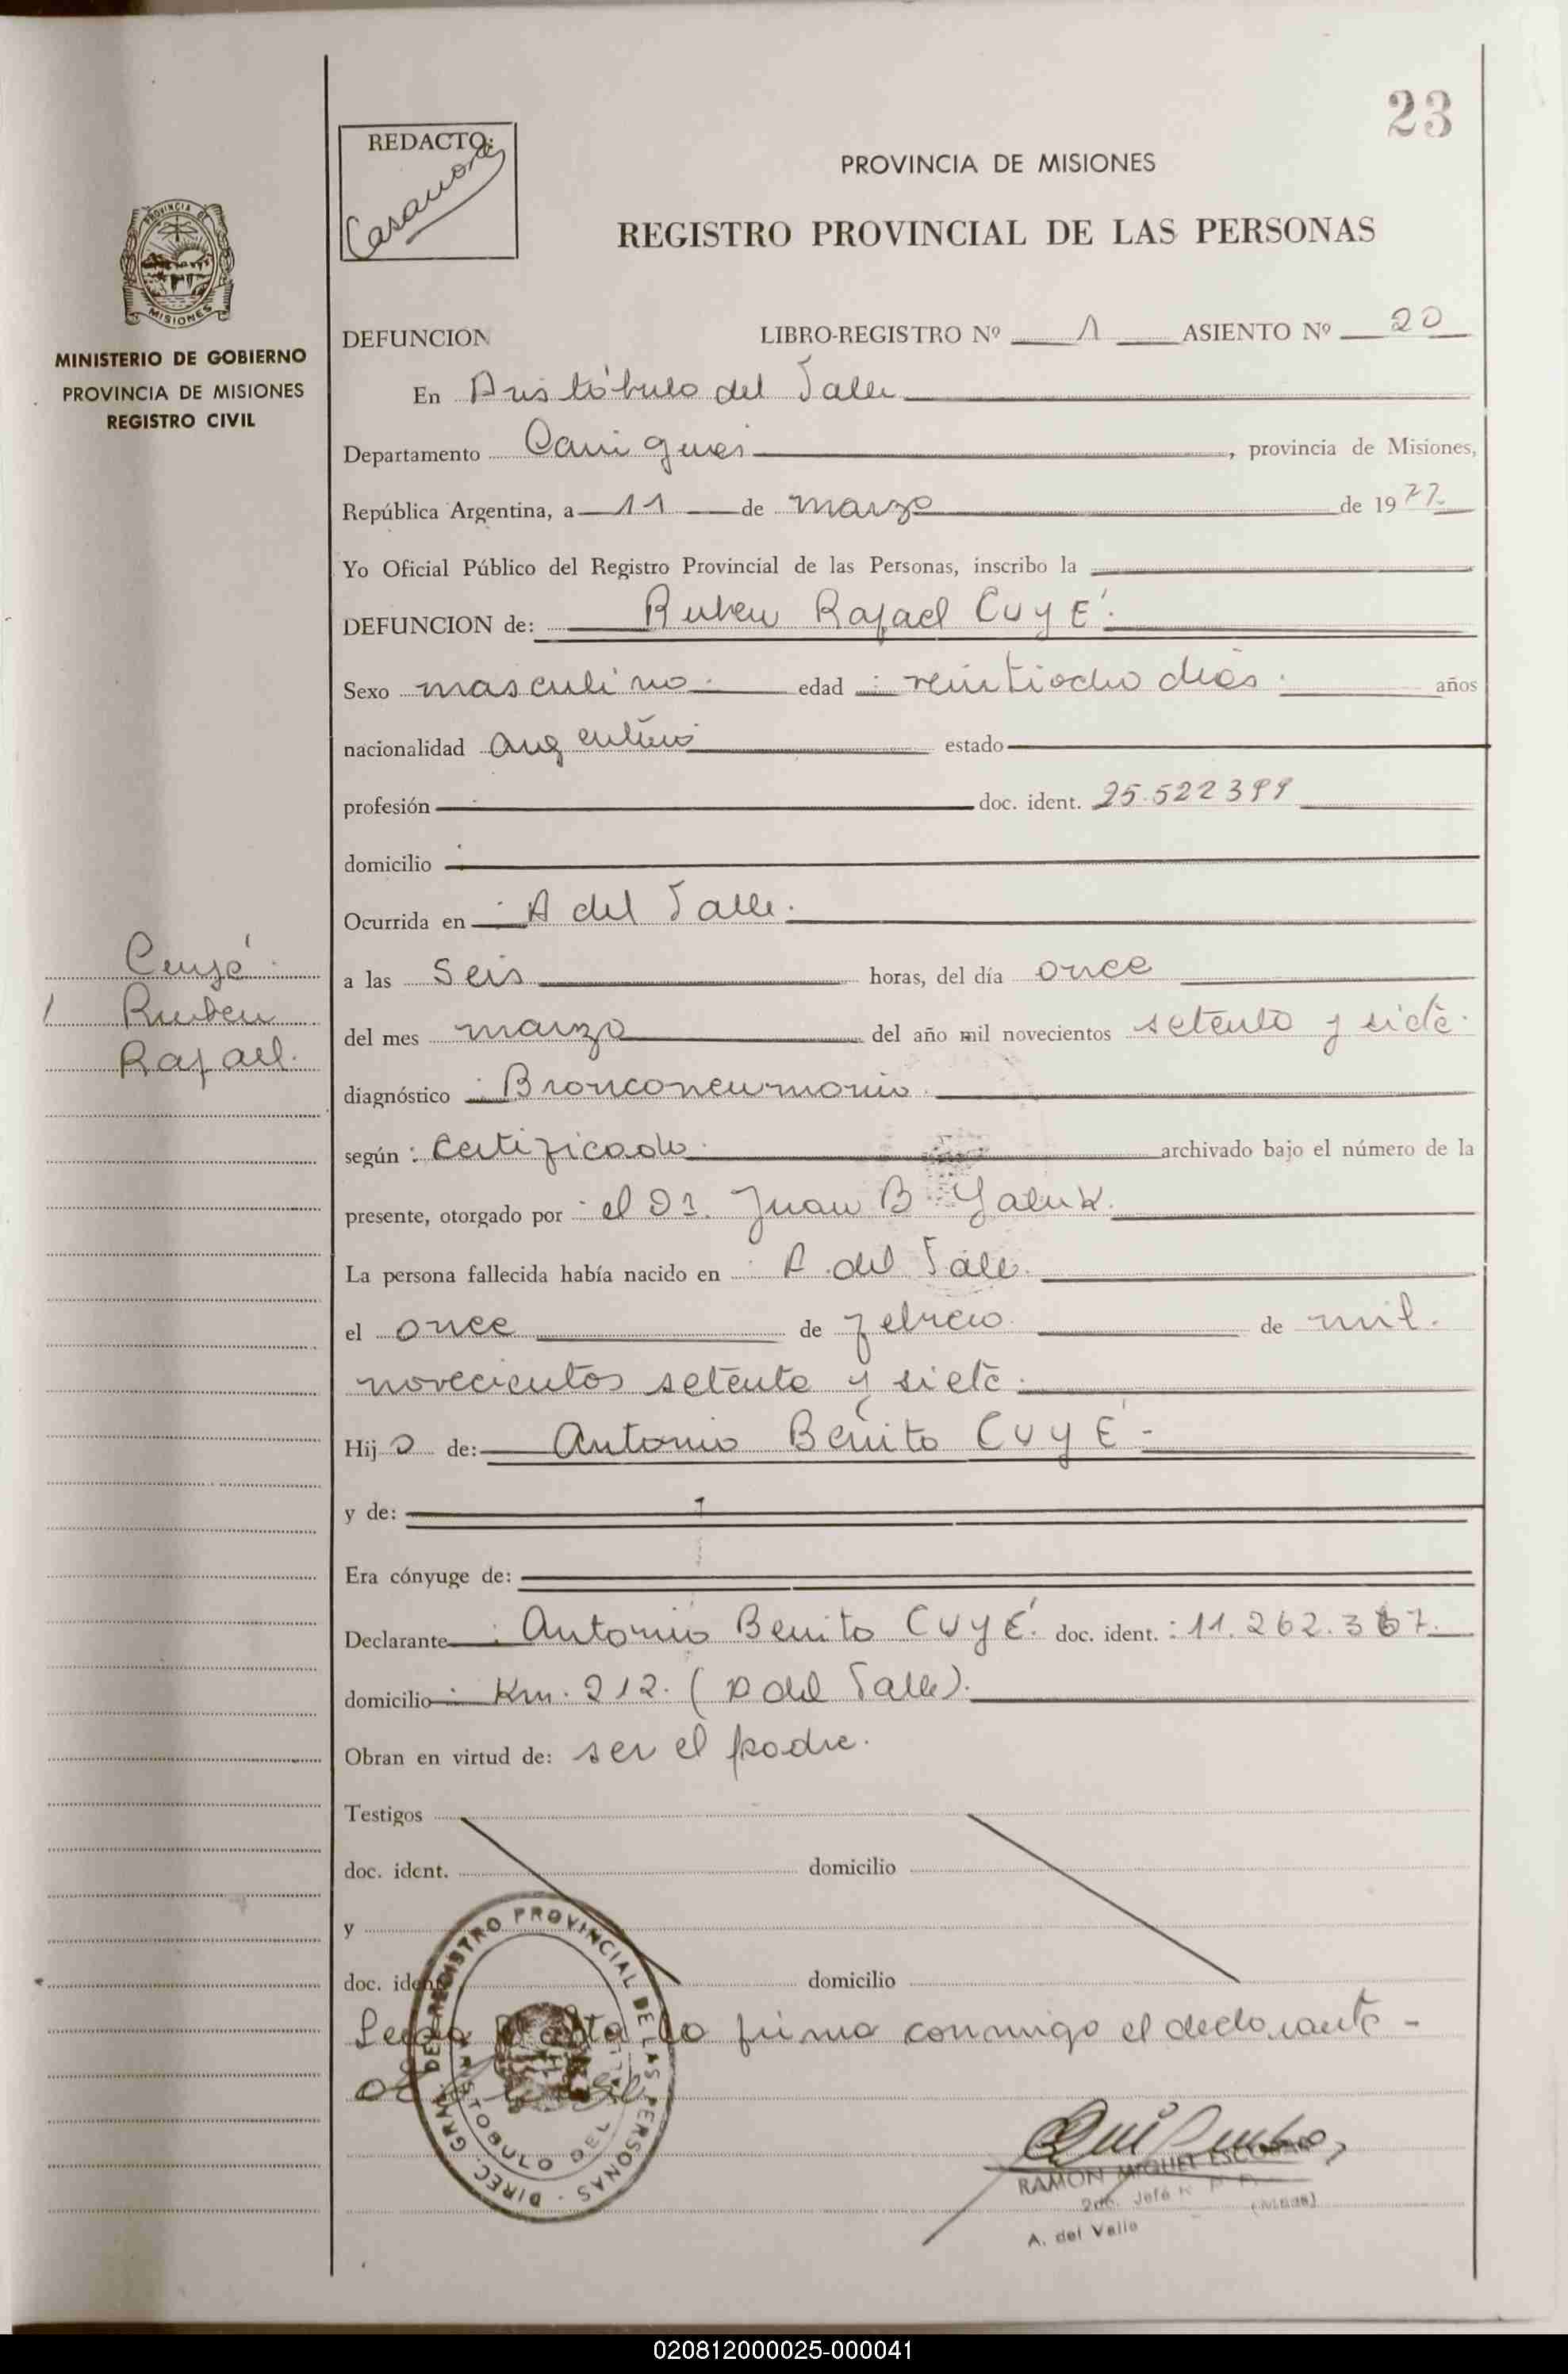 23
REDACTO:
Casanova
PROVINCIA DE MISIONES
REGISTRO PROVINCIAL DE LAS PERSONAS
PROVINCIA DE
MISIONES
MINISTERIO DE GOBIERNO
PROVINCIA DE MISIONES
REGISTRO CIVIL
DEFUNCION LIBRO-REGISTRO Nº 1 ASIENTO Nº 20
En Aristóbulo del Valle
Departamento Cainguas, provincia de Misiones,
República Argentina, a 11 de marzo de 1977
Yo Oficial Público del Registro Provincial de las Personas, inscribo la
DEFUNCION de: Ruben Rafael CUYÉ.
Sexo masculino. edad : veintiocho dias. años
nacionalidad argentino estado
profesión doc. ident. 25.522399
domicilio
Ocurrida en A del Valle.
Cuyé.
Ruben
Rafael.
a las Seis horas, del día once
del mes marzo del año mil novecientos setenta y siete.
diagnóstico : Bronconeumonia.
según : Certificado. archivado bajo el número de la
presente, otorgado por : el Dr. Juan B Yaluk.
La persona fallecida había nacido en A. del Valle.
el once de febrero. de mil.
novecientos setenta y siete.
Hijo de: Antonio Benito CUYÉ -
y de:
Era cónyuge de:
Declarante : Antonio Benito CUYÉ. doc. ident. : 11.262.367.
domicilio : Km. 212. (A del Valle).
Obran en virtud de: ser el padre.
Testigos
doc. ident. domicilio
y
doc. ident. domicilio
Leida el acta la firma conmigo el declarante -
DIREC. GRAL. DEL REGISTRO PROVINCIAL DE LAS PERSONAS -
ARISTOBULO DEL VALLE
RAMON MIGUEL ESCOBAR
2do. Jefe R. P. P.
A. del Valle (Mnes)
020812000025-000041